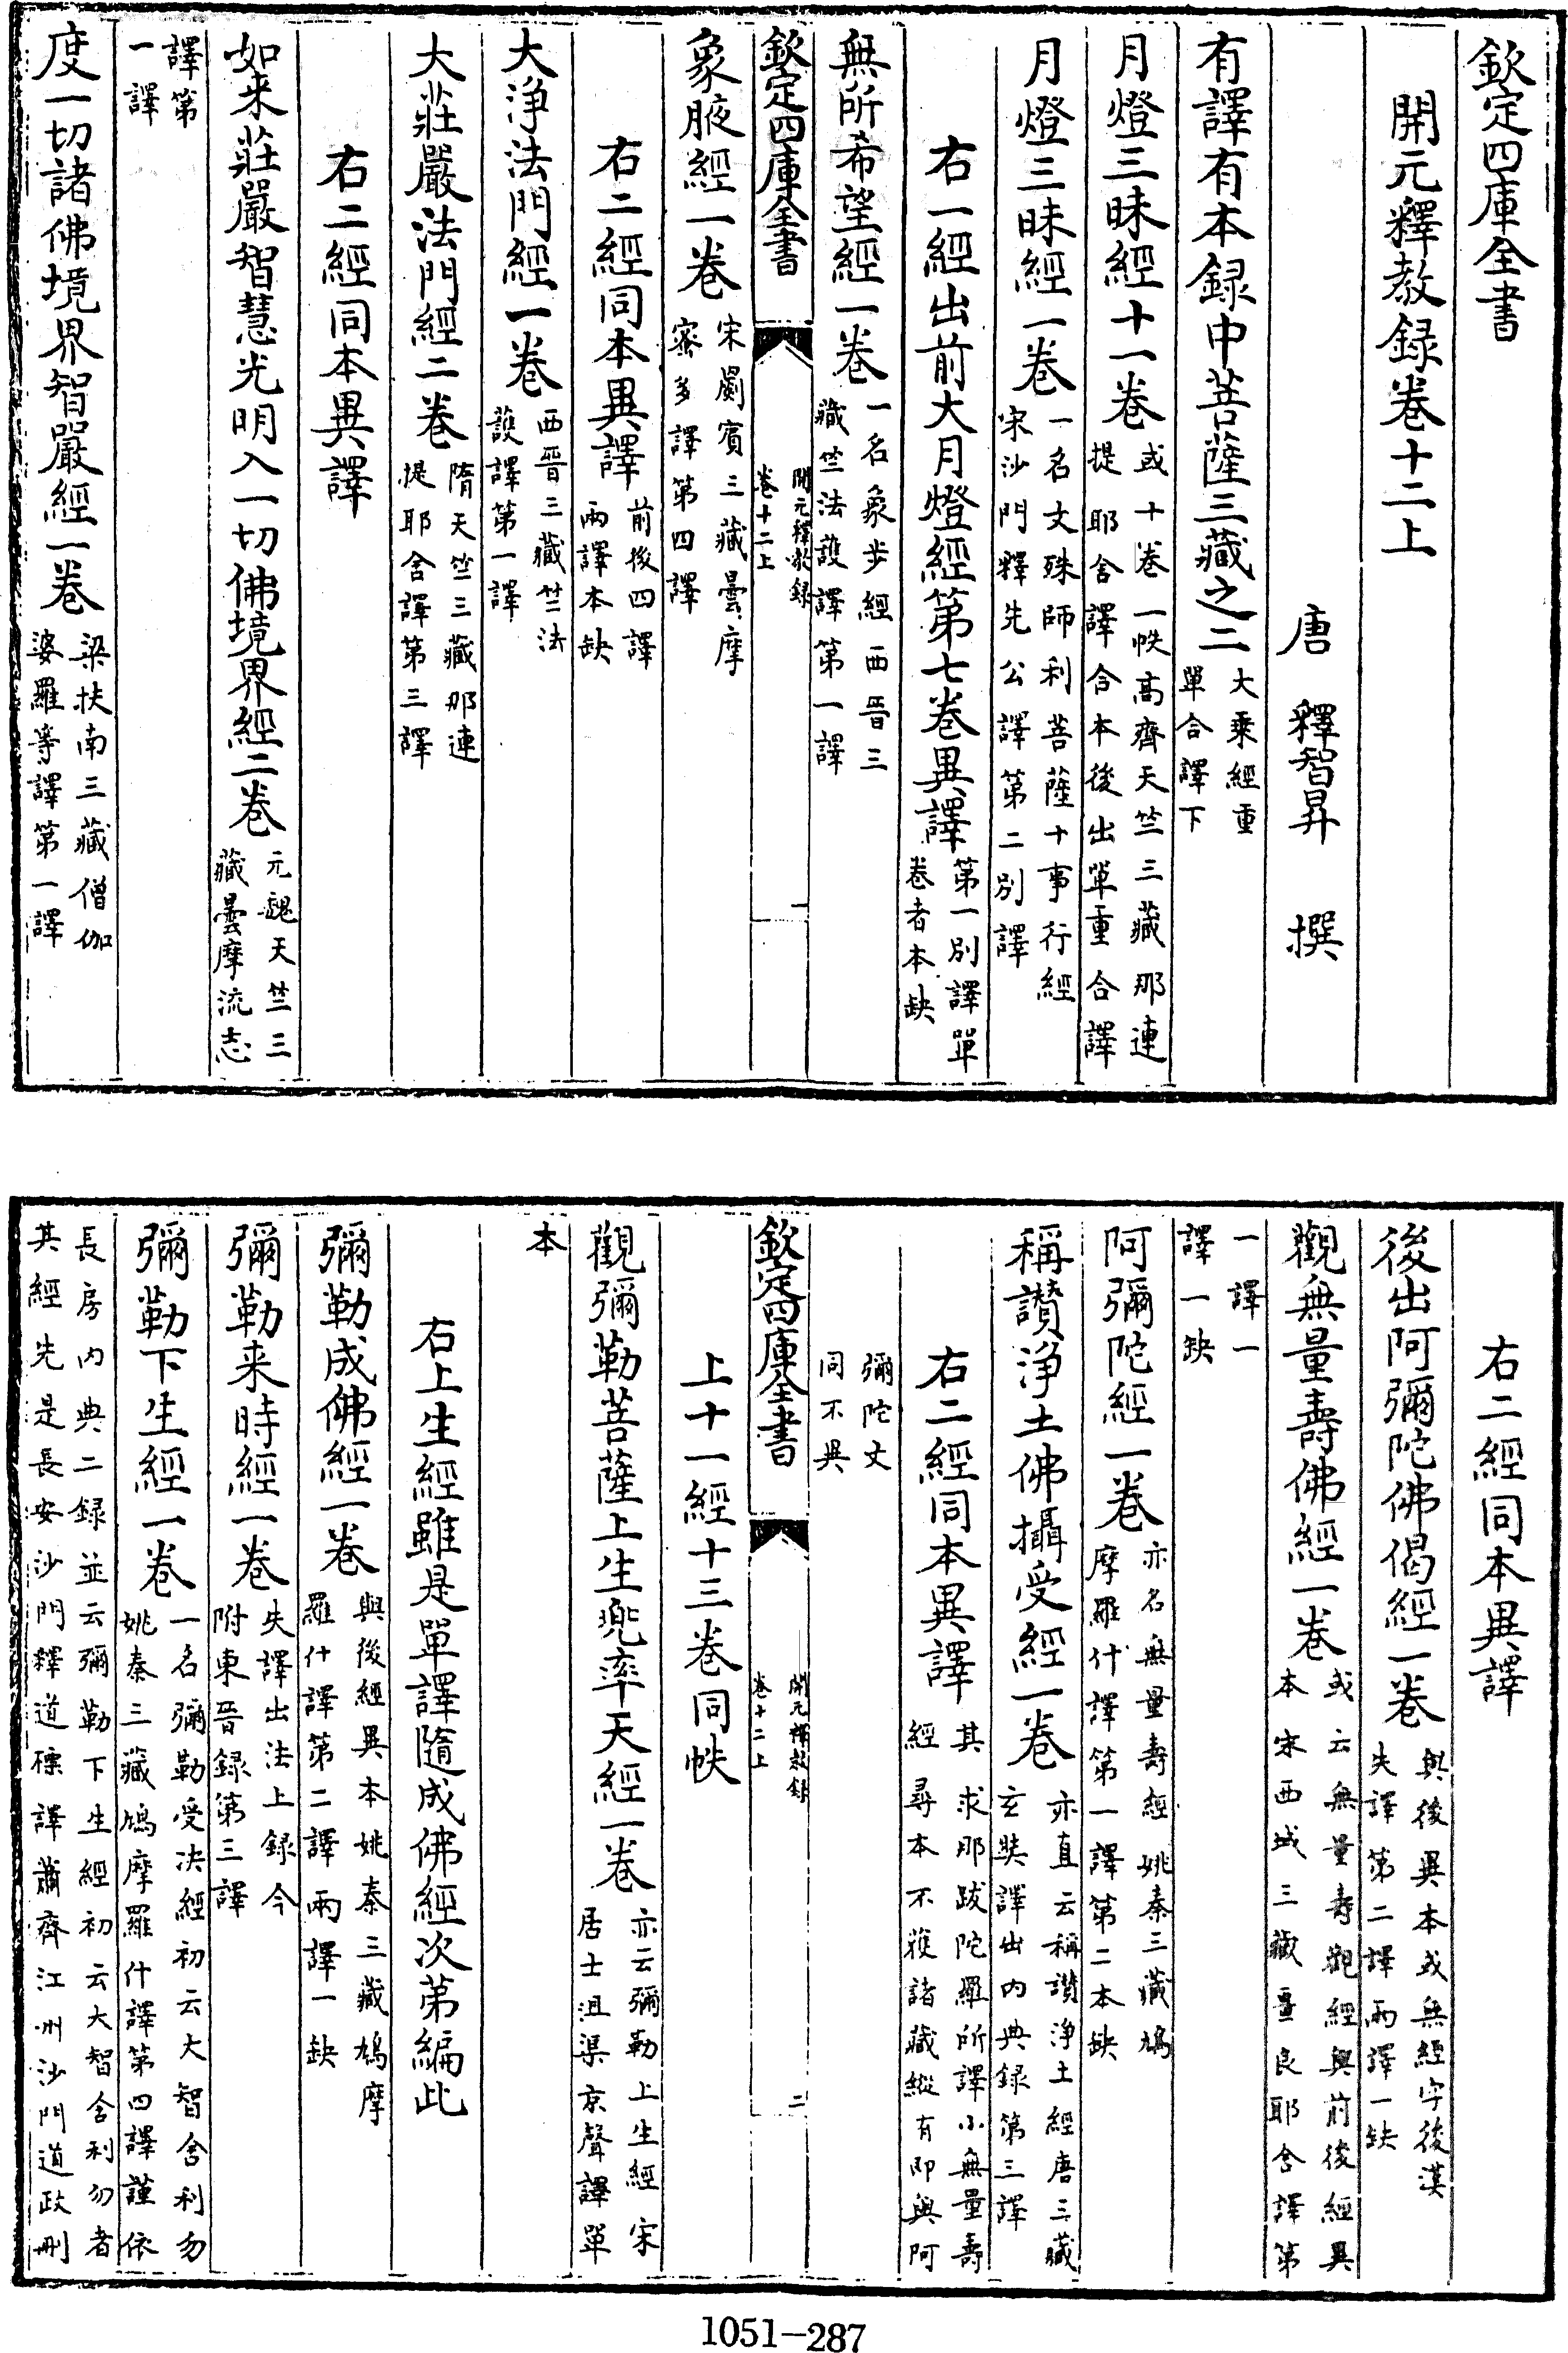 欽定四庫全書
開元釋教録卷十二上
唐　釋智昇　撰
有譯有本録中菩薩三藏之二大乗經重單合譯下
月燈三昧經十一卷或十卷一帙高齊天竺三藏那連提耶舍譯合本後出單重合譯
月燈三昧經一卷一名文殊師利菩薩十事行經宋沙門釋先公譯第二別譯
右一經出前大月燈經第七卷異譯第一別譯單卷者本缺
無所希望經一卷一名象步經西晉三藏竺法護譯第一譯
欽定四庫全書　開元釋教録卷十二上　一
象腋經一卷宋罽賓三藏曇摩蜜多譯第四譯
右二經同本異譯前後四譯兩譯本缺
大淨法門經一卷西晉三藏竺法護譯第一譯
大莊嚴法門經二卷隋天竺三藏那連提耶舍譯第三譯
右二經同本異譯
如来莊嚴智慧光明入一切佛境界經二卷元魏天竺三藏曇摩流志
譯第一譯
度一切諸佛境界智嚴經一卷梁扶南三藏僧伽婆羅等譯第一譯
右二經同本異譯
後出阿彌陀佛偈經一卷與後異本或無經字後漢失譯第二譯兩譯一缺
觀無量壽佛經一卷或云無量壽觀經與前後經異本宋西域三藏畺良耶舍譯第
一譯一譯一缺
阿彌陀經一卷亦名無量壽經姚秦三藏鳩摩羅什譯第一譯第二本缺
稱讚淨土佛攝受經一卷亦直云稱讚淨土經唐三藏玄奘譯出内典録第三譯
右二經同本異譯其求那跋陀羅所譯小無量壽經尋本不獲諸藏縱有即與阿
彌陀文同不異
欽定四庫全書　開元釋教録卷十二上　二
上十一經十三卷同帙
觀彌勒菩薩上生兜率天經一卷亦云彌勒上生經宋居士沮渠京聲譯單
本
右上生經雖是單譯隨成佛經次第編此
彌勒成佛經一卷與後經異本姚秦三藏鳩摩羅什譯第二譯兩譯一缺
彌勒来時經一卷失譯出法上録今附東晉録第三譯
彌勒下生經一卷一名彌勒受決經初云大智舍利勿姚秦三藏鳩摩羅什譯第四譯謹依
長房内典二録並云彌勒下生經初云大智舍利勿者其經先是長安沙門釋道標譯蕭齊江州沙門道政刪
1051—287